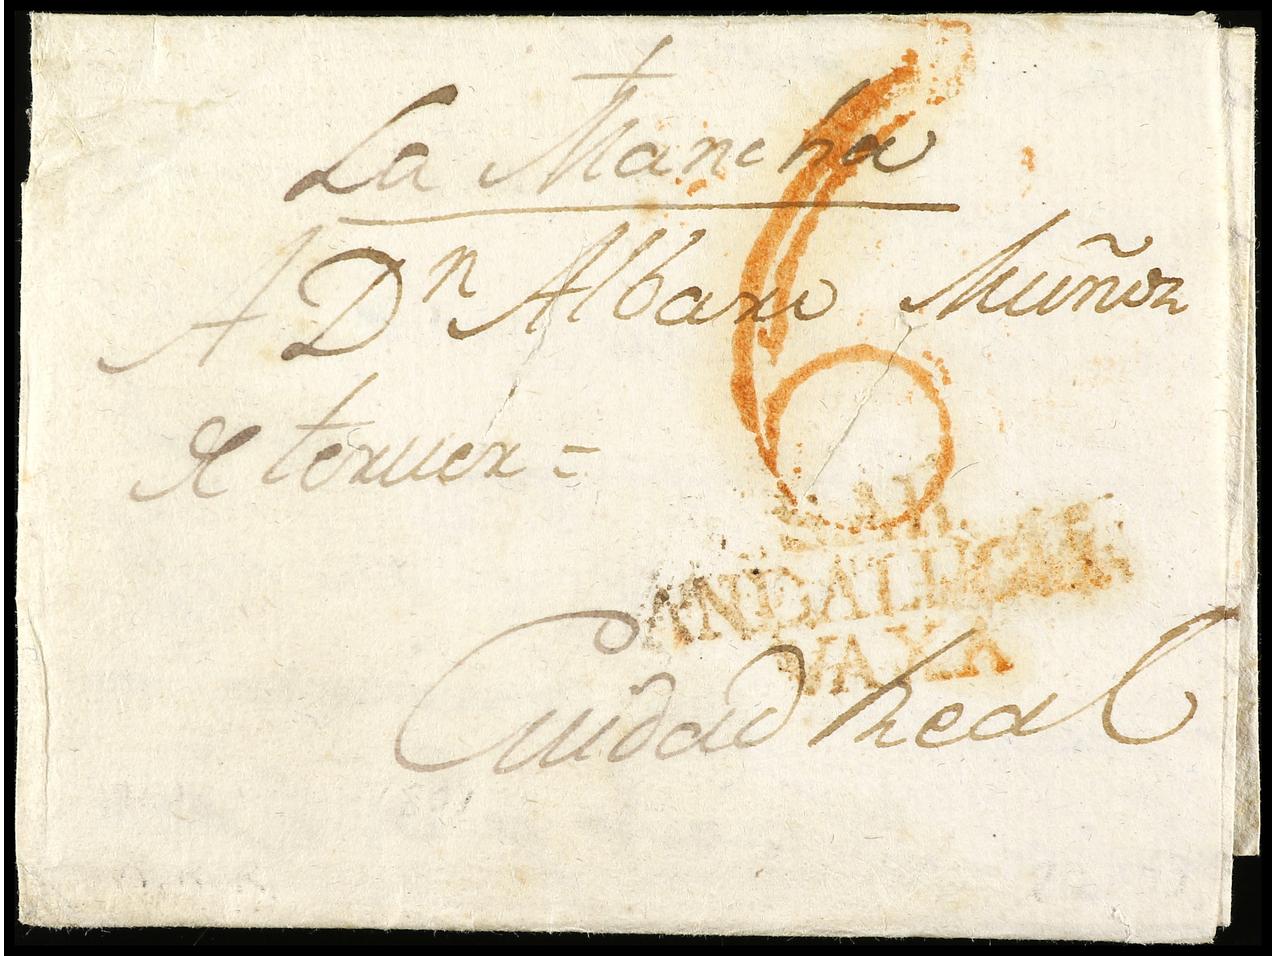 La Mancha
6
A Dn Albaro Muñoz
de teruer =
ANDALUCIA
VAXA
Ciudad Real